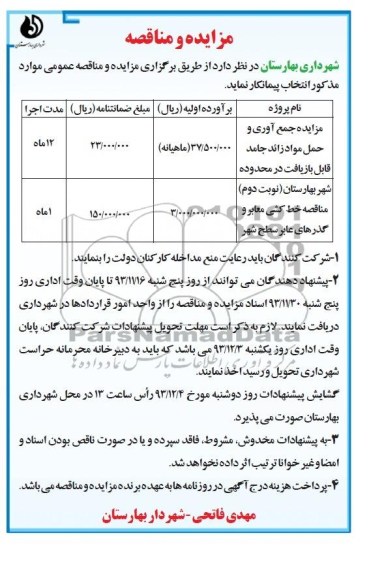 شهرداری بهارستان
مزایده و مناقصه
شهرداری بهارستان در نظر دارد از طریق برگزاری مزایده و مناقصه عمومی موارد
مذکور انتخاب پیمانکار نماید.
نام پروژه برآورد اولیه (ریال) مبلغ ضمانتنامه (ریال) مدت اجرا
مزایده جمع آوری و
حمل مواد زائد جامد
قابل بازیافت در محدوده
شهر بهارستان (نوبت دوم)
۳۷/۵۰۰/۰۰۰ (ماهیانه) ۲۳/۰۰۰/۰۰۰ ۱۲ ماه
مناقصه خط کشی معابر و
گذرهای عابر سطح شهر
۳/۰۰۰/۰۰۰/۰۰۰ ۱۵۰/۰۰۰/۰۰۰ ۱ ماه
۱-شرکت کنندگان باید رعایت منع مداخله کارکنان دولت را بنمایند.
۲-پیشنهاد دهندگان می توانند از روز پنج شنبه ۹۳/۱۱/۱۶ تا پایان وقت اداری روز
پنج شنبه ۹۳/۱۱/۳۰ اسناد مزایده و مناقصه را از واحد امور قراردادها در شهرداری
دریافت نمایند. لازم به ذکر است مهلت تحویل پیشنهادات شرکت کنندگان، پایان
وقت اداری روز یکشنبه ۹۳/۱۲/۳ می باشد که باید به دبیرخانه محرمانه حراست
شهرداری تحویل و رسید اخذ نمایند.
گشایش پیشنهادات روز دوشنبه مورخ ۹۳/۱۲/۴ رأس ساعت ۱۳ در محل شهرداری
بهارستان صورت می پذیرد.
۳-به پیشنهادات مخدوش، مشروط، فاقد سپرده و یا در صورت ناقص بودن اسناد و
امضا و غیر خوانا ترتیب اثر داده نخواهد شد.
۴-پرداخت هزینه درج آگهی در روزنامه ها به عهده برنده مزایده و مناقصه می باشد.
مهدی فاتحی -شهردار بهارستان
ParsNamadData